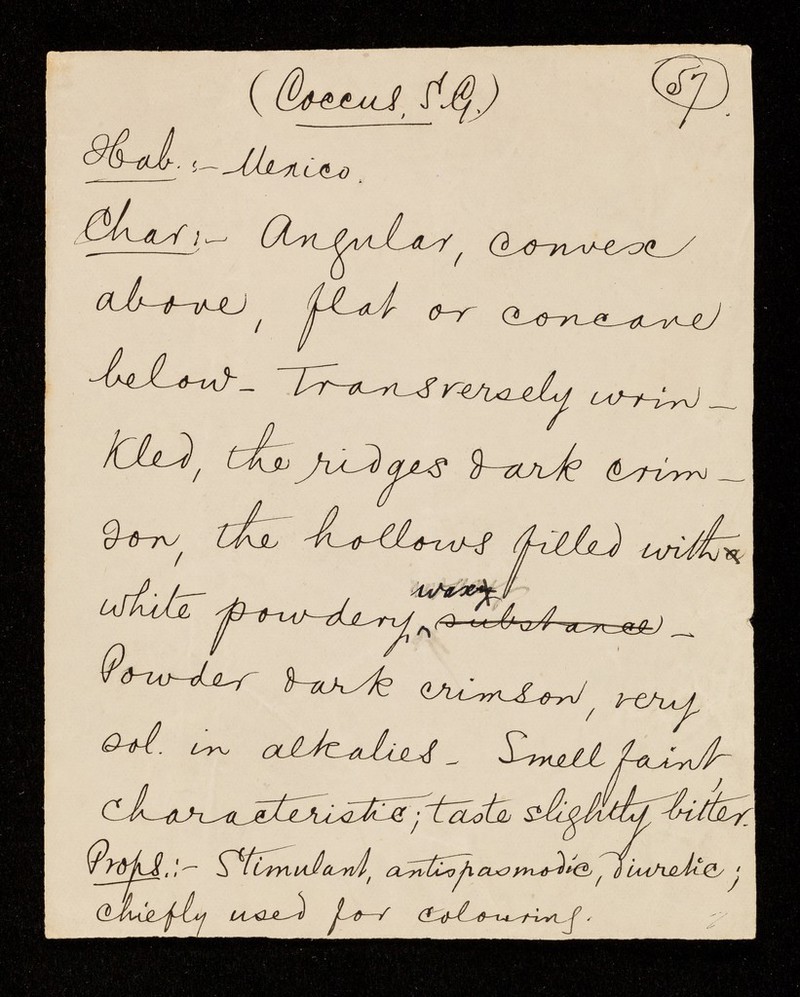 (Coccus, S.G.)
57.
Hab.:- Mexico.
Char:- Angular, convex
above, flat or concave
below - Transversely wrin-
kled, the ridges dark crim-
son, the hollows filled with a
white powdery, waxy substance -
Powder dark crimson, very
sol. in alkalies - Smell faint,
characteristic; taste slightly bitter.
Props.:- Stimulant, antispasmodic, diuretic;
chiefly used for colouring.